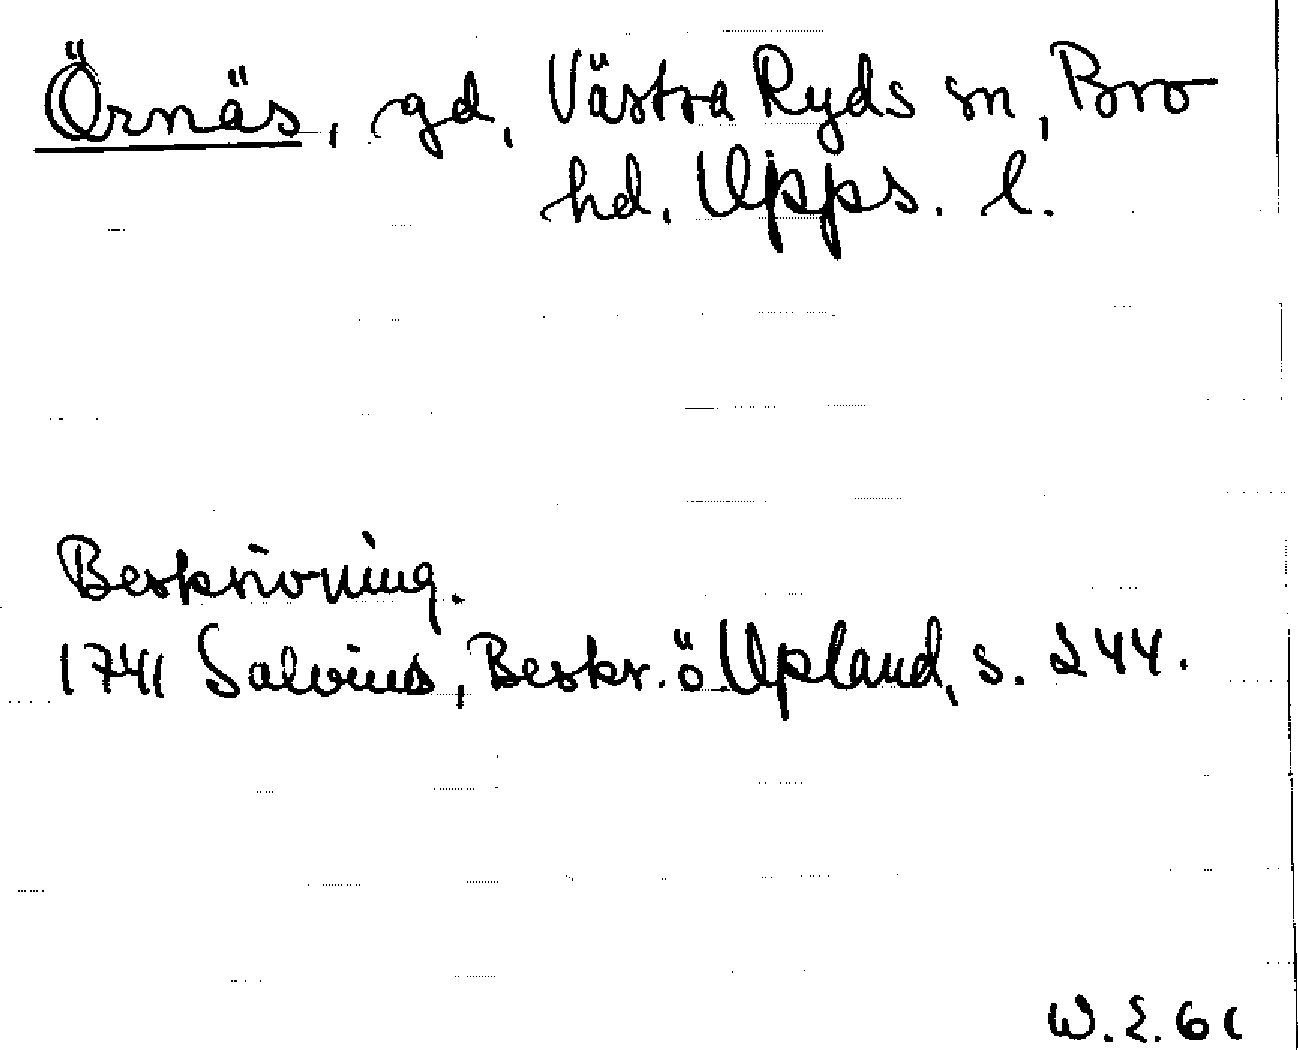 Örnäs, gd, Västra Ryds sn, Bro
hd. Upps. l.
Beskrivning.
1741 Salvius, Beskr. ö Upland, s. 244.
W.E. 61